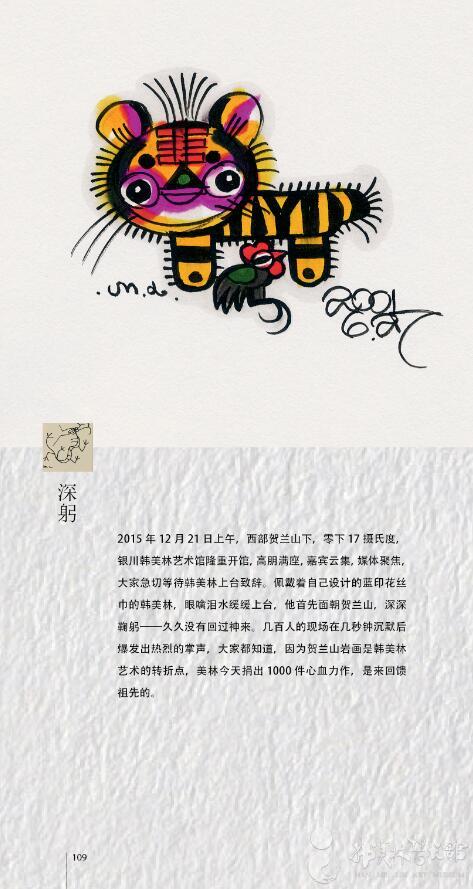 .m.d.
2001
深躬
2015 年 12 月 21 日上午，西部贺兰山下，零下 17 摄氏度，
银川韩美林艺术馆隆重开馆，高朋满座，嘉宾云集，媒体聚焦，
大家急切等待韩美林上台致辞。佩戴着自己设计的蓝印花丝
巾的韩美林，眼噙泪水缓缓上台，他首先面朝贺兰山，深深
鞠躬——久久没有回过神来。几百人的现场在几秒钟沉默后
爆发出热烈的掌声，大家都知道，因为贺兰山岩画是韩美林
艺术的转折点，美林今天捐出 1000 件心血力作，是来回馈
祖先的。
109
韩美林艺术馆
HAN MEI LIN ART MUSEUM